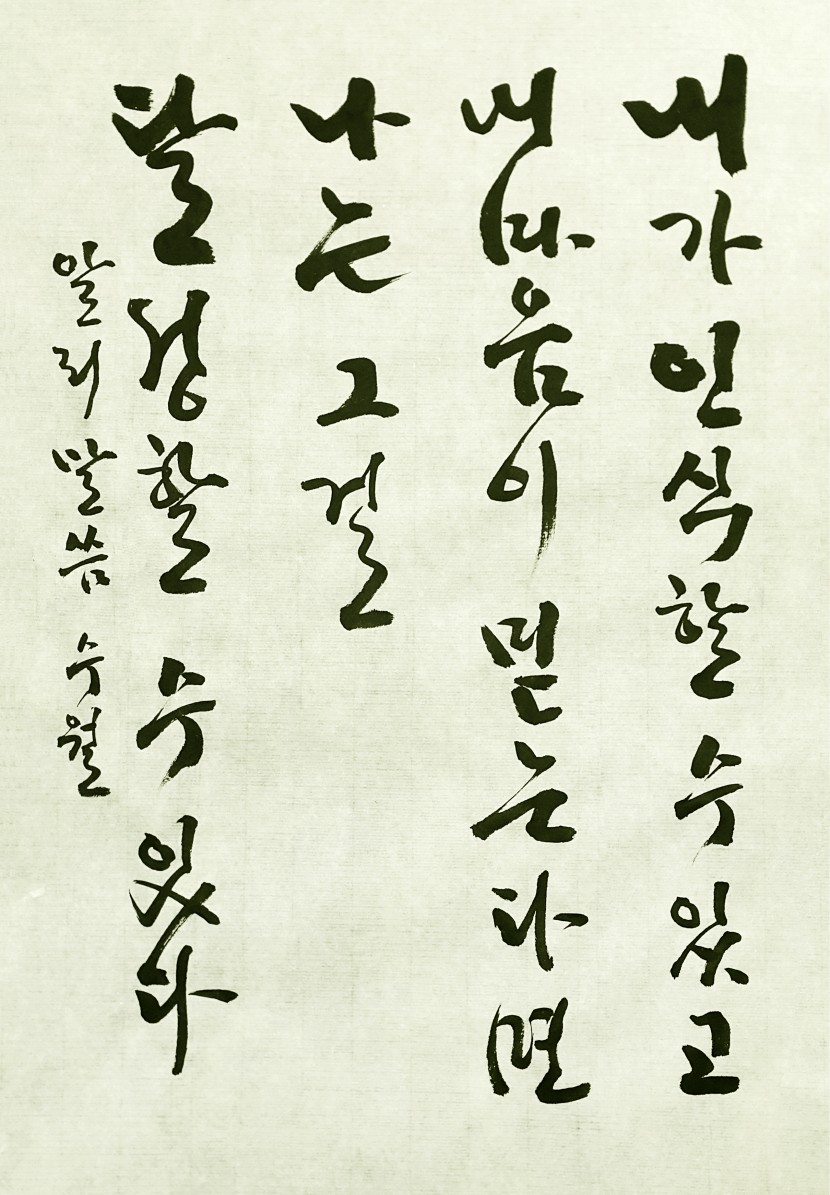 내가 인식할 수 있고
내 마음이 믿는다면
나는 그걸
달성할 수 있다
알리 말씀 수월